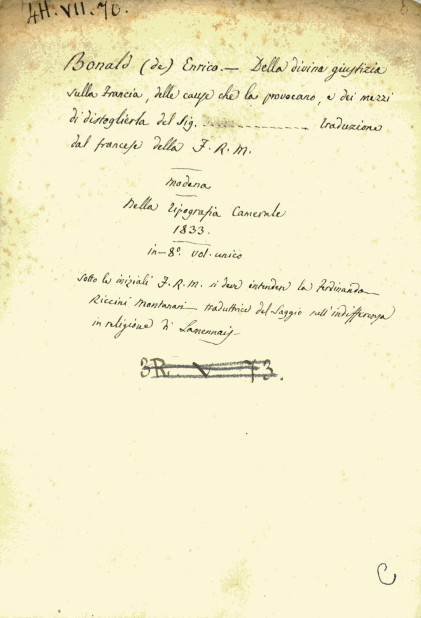 4H.VII.70.
Bonald (de) Enrico. — Della divina giustizia
sulla Francia, delle cause che la provocano, e dei mezzi
di distoglierla del Sig. .................... traduzione
dal francese della F. R. M.
Modena
Nella Tipografia Camerale
1833.
in-8º. vol. unico
sotto le iniziali F. R. M. si deve intendere la Ferdinanda
Riccini Montanari traduttrice del Saggio sull'indifferenza
in religione di Lamennais
3R. V 73.
C